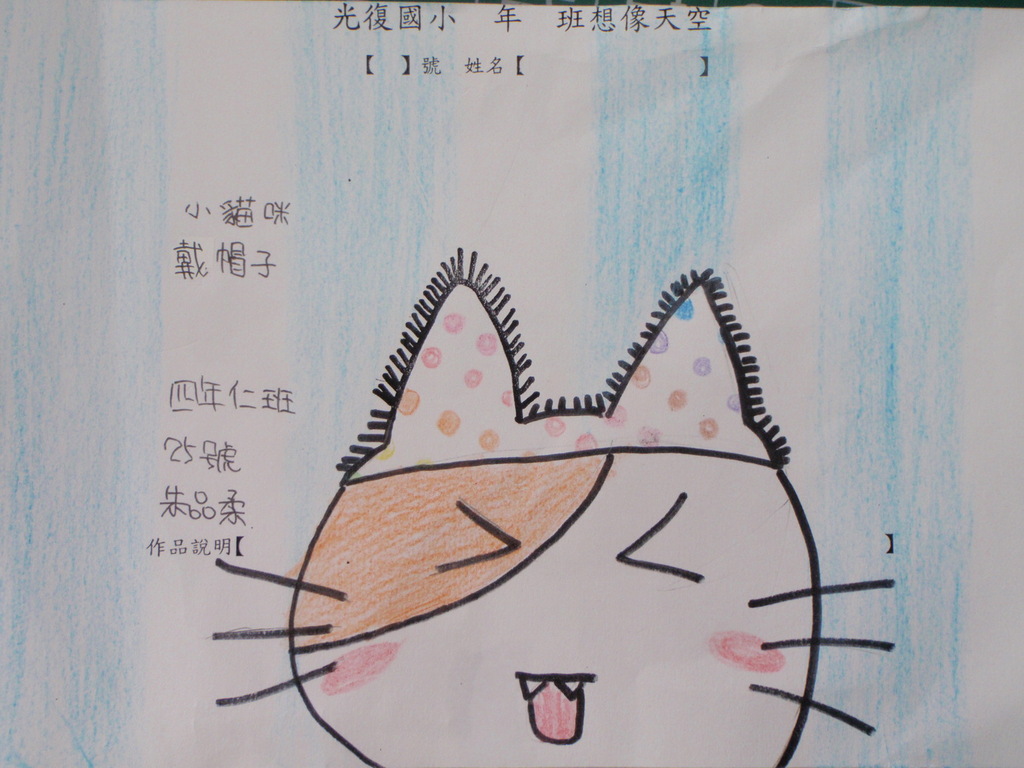 光復國小　年　班想像天空
【　】號　姓名【　　　　　】
小貓咪
戴帽子
四年仁班
25號
朱品柔
作品說明【　　　　　】